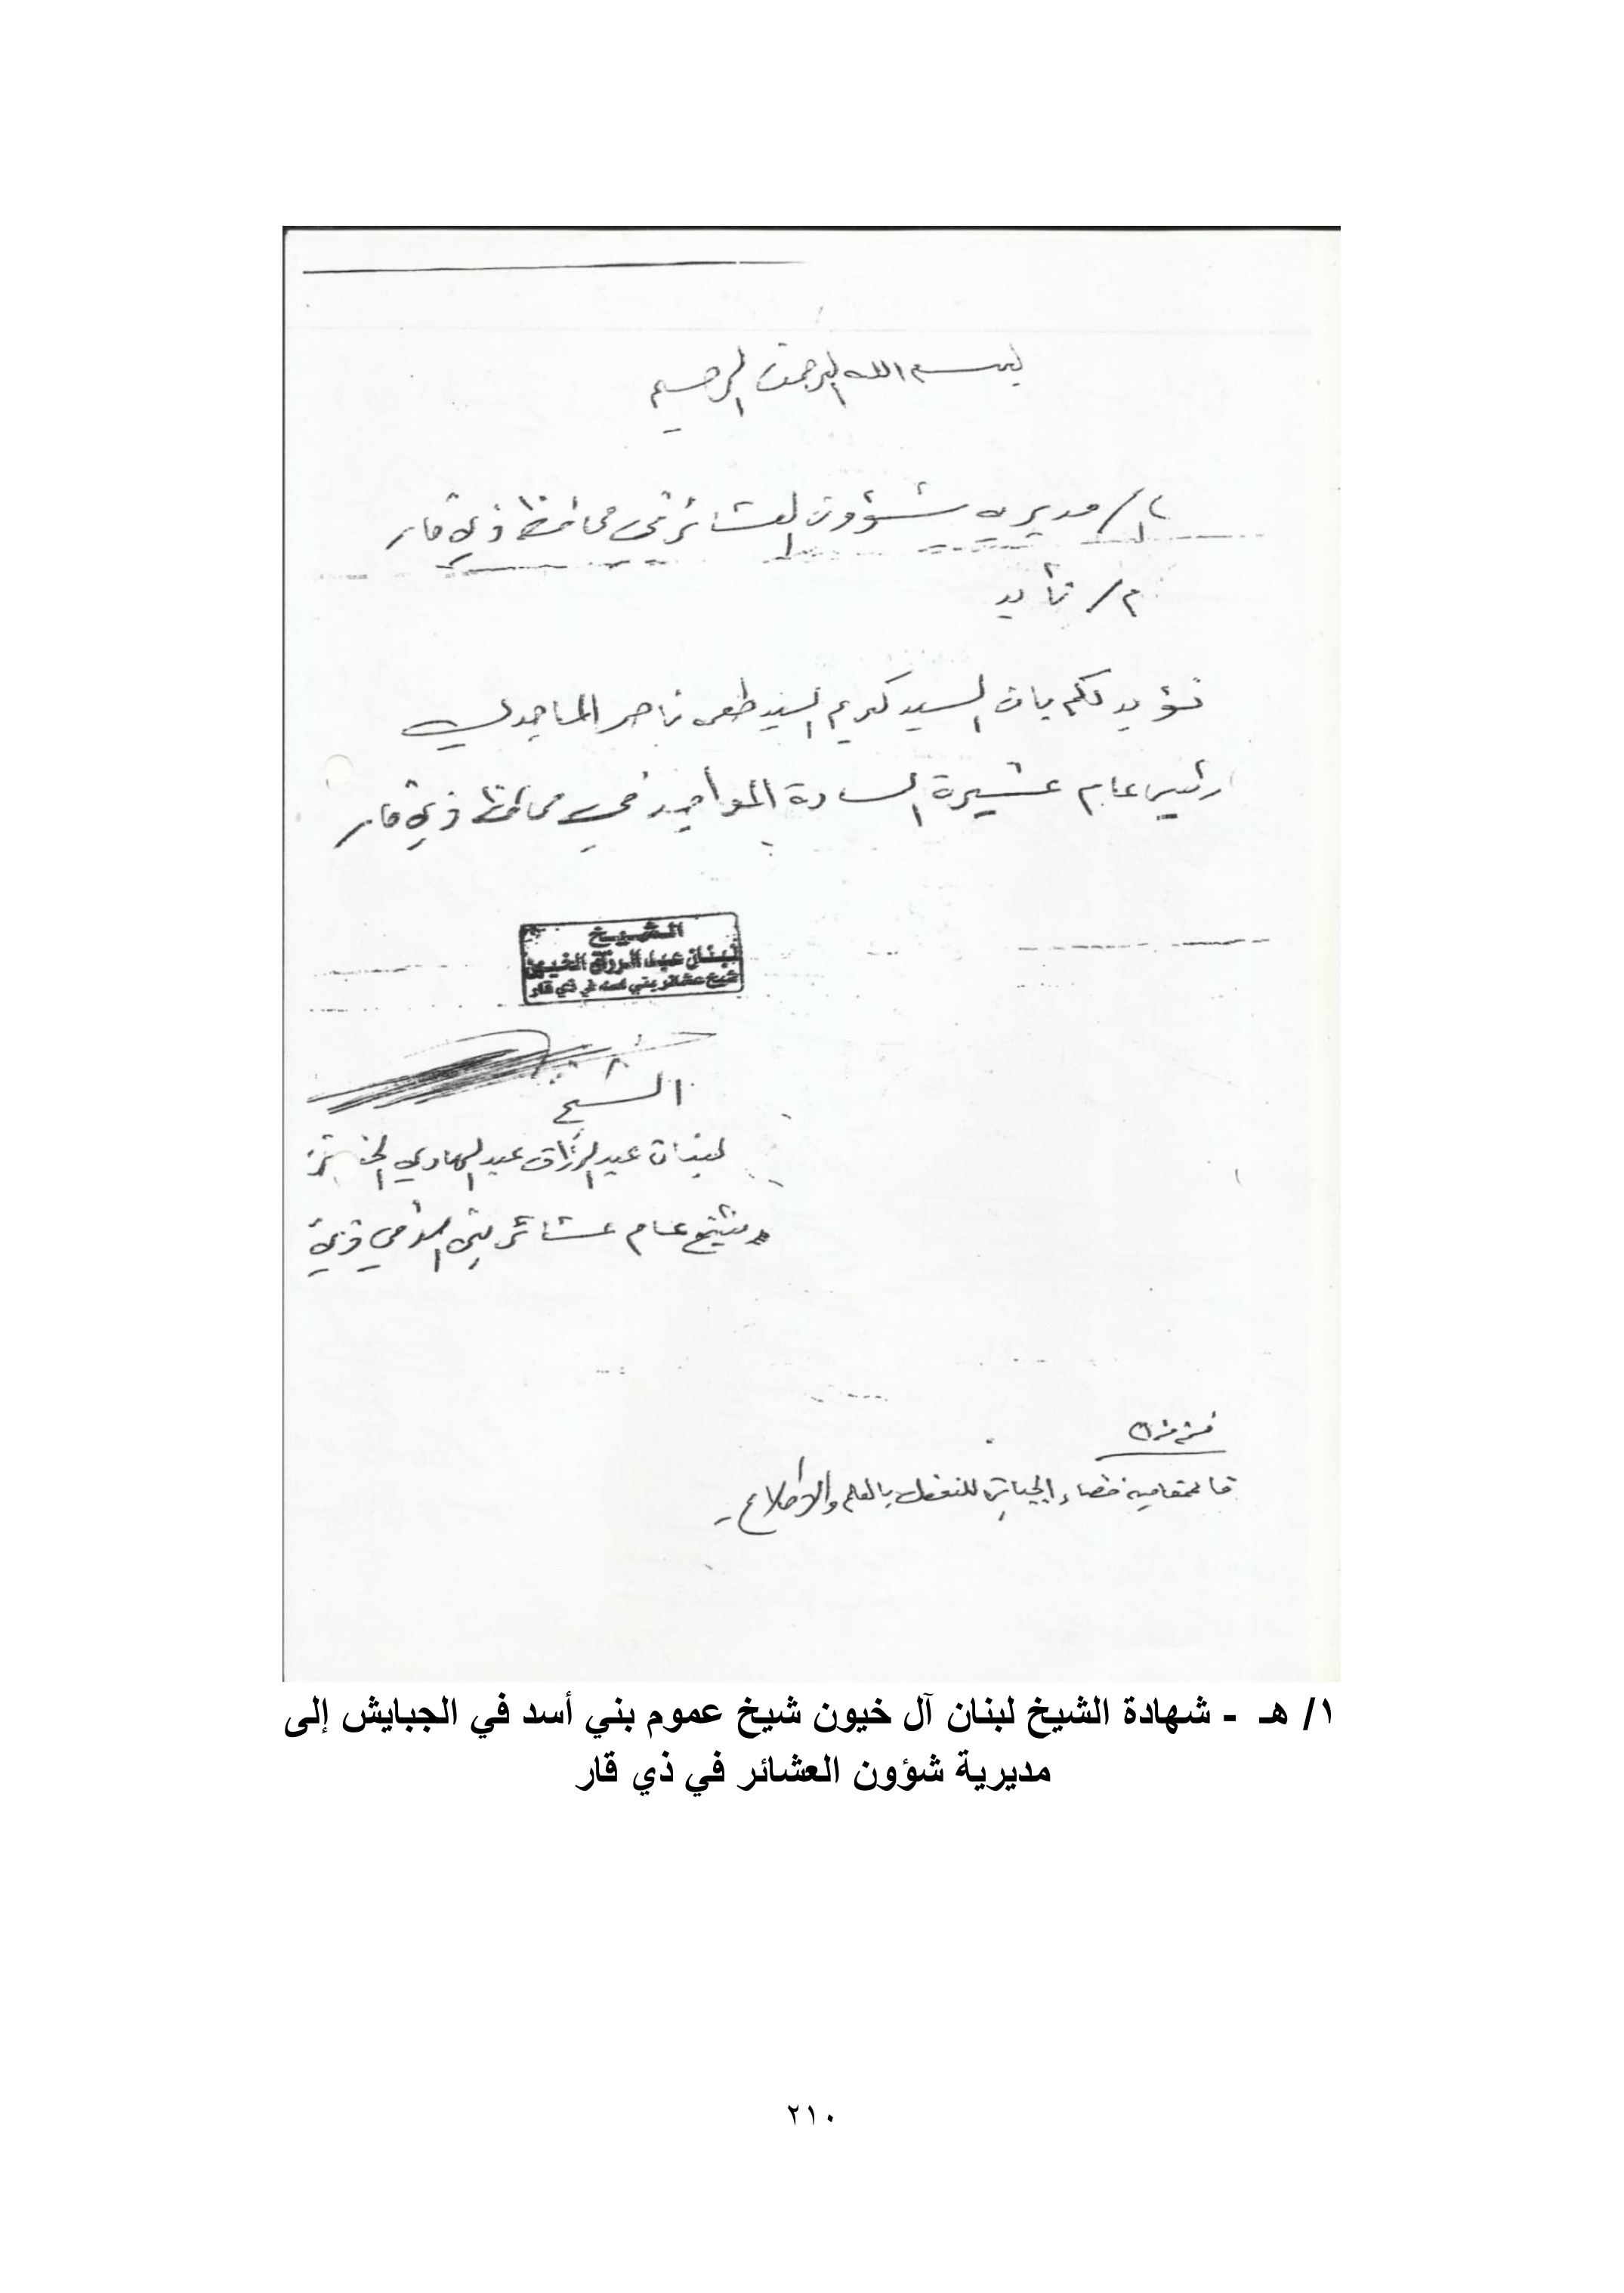 بسم الله الرحمن الرحيم
الى/ مديرية شؤون العشائر في محافظة ذي قار
م/ تأييد
نؤيد لكم بان السيد كريم السيد طعمه ناصر الماجدي
رئيس عام عشيرة السادة المواجد في محافظة ذي قار
الشيخ
لبنان عبد الرزاق الخيون
شيخ عشائر بني اسد في ذي قار
الشيخ
لبنان عبد الرزاق عبد الهادي
شيخ عام عشائر بني اسد في ذي
نسخة منه
قائمقامية قضاء الجبايش للتفضل بالعلم والاطلاع -
١/ هـ - شهادة الشيخ لبنان آل خيون شيخ عموم بني أسد في الجبايش إلى
مديرية شؤون العشائر في ذي قار
٢١٠